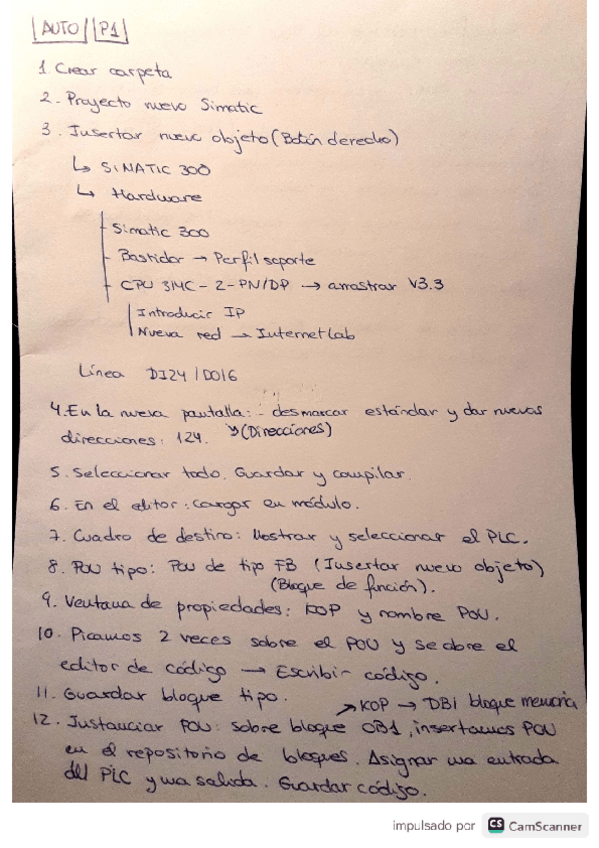 AUTO P1
1. Crear carpeta
2. Proyecto nuevo Simatic
3. Insertar nuevo objeto (Botón derecho)
↳ SIMATIC 300
↳ Hardware
Simatic 300
Bastidor → Perfil soporte
CPU 314C-2-PN/DP → arrastrar V3.3
Introducir IP
Nueva red → Internetlab
Línea DI24/DO16
4. En la nueva pantalla: - desmarcar estándar y dar nuevas
direcciones: 124. (Direcciones)
5. Seleccionar todo. Guardar y compilar.
6. En el editor: cargar en módulo.
7. Cuadro de destino: Mostrar y seleccionar el PLC.
8. POU tipo: POU de tipo FB (Insertar nuevo objeto)
(Bloque de función).
9. Ventana de propiedades: KOP y nombre POU.
10. Picamos 2 veces sobre el POU y se abre el
editor de código → Escribir código.
11. Guardar bloque tipo.
↗ KOP → DB1 bloque memoria
12. Instanciar POU: sobre bloque OB1, insertamos POU
en el repositorio de bloques. Asignar una entrada
del PLC y una salida. Guardar código.
impulsado por CS CamScanner